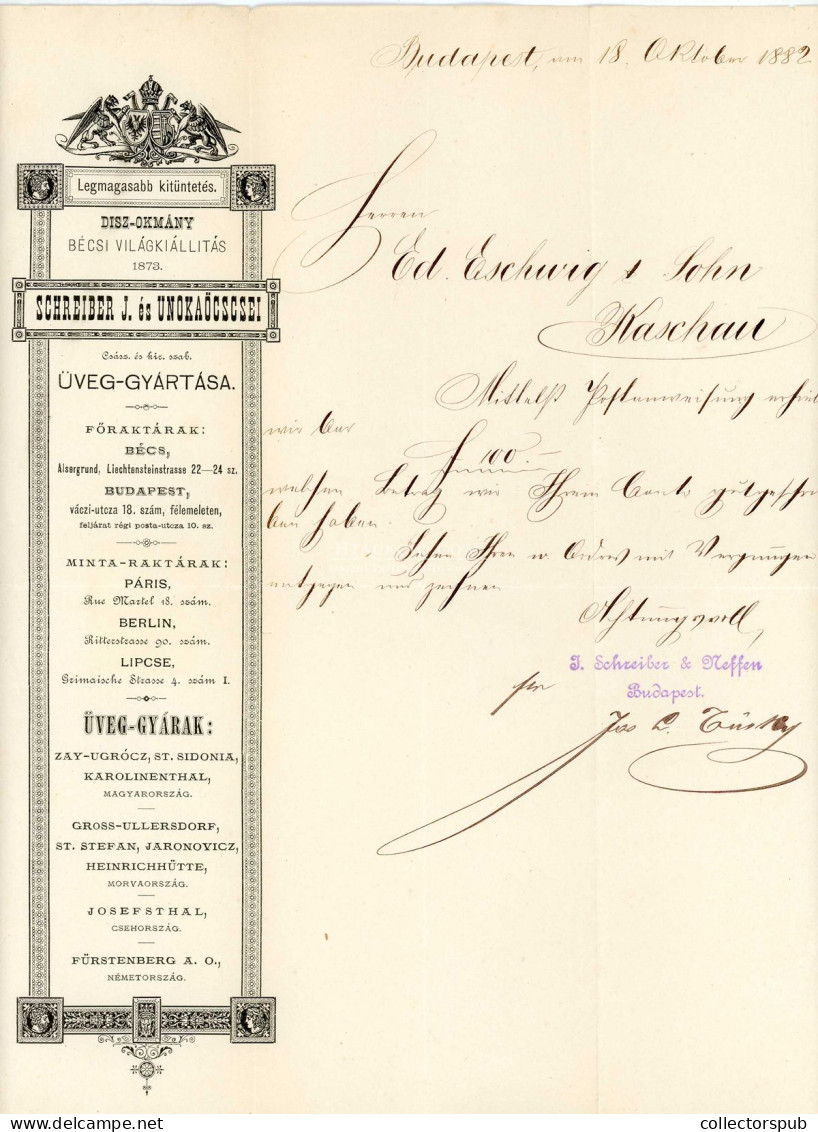 Budapest, am 18. Oktober 1882
Legmagasabb kitüntetés.
DISZ-OKMÁNY
BÉCSI VILÁGKIÁLLITÁS
1873.
SCHREIBER J. és UNOKAÖCSCSEI
Csász. és kir. szab.
ÜVEG-GYÁRTÁSA.
FŐRAKTÁRAK:
BÉCS,
Alsergrund, Liechtensteinstrasse 22—24 sz.
BUDAPEST,
váczi-utcza 18. szám, félemeleten,
feljárat régi posta-utcza 10. sz.
MINTA-RAKTÁRAK:
PÁRIS,
Rue Martel 18. szám.
BERLIN,
Ritterstrasse 90. szám.
LIPCSE,
Grimaische Strasse 4. szám I.
ÜVEG-GYÁRAK:
ZAY-UGRÓCZ, ST. SIDONIA,
KAROLINENTHAL,
MAGYARORSZÁG.
GROSS-ULLERSDORF,
ST. STEFAN, JARONOVICZ,
HEINRICHHÜTTE,
MORVAORSZÁG.
JOSEFSTHAL,
CSEHORSZÁG.
FÜRSTENBERG A. O.,
NÉMETORSZÁG.
Herren
Ed. Eschwig & Sohn
Kaschau
Mittelst Postanweisung erhiel
wir bar
100.—
welchen Betrag wir Ihrem Conto gutgeschrie
ben haben.
Sehen Ihren w. Ordres mit Vergnügen
entgegen und zeichnen
Achtungsvoll
J. Schreiber & Neffen
Budapest.
per
collectorspub